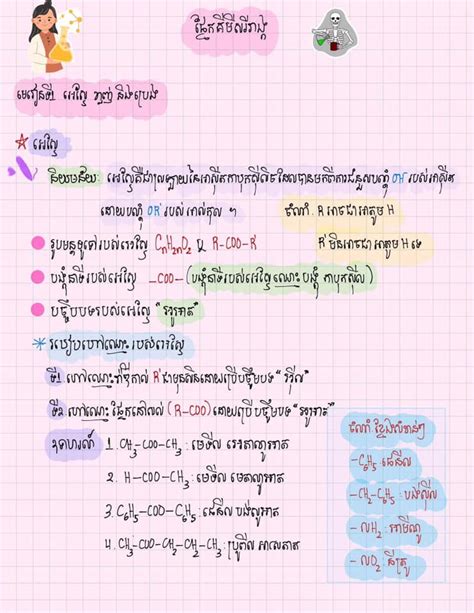 ផ្នែកគីមីសរីរាង្គ
មេរៀនទី1 អេស្ទែ ខ្លាញ់ និងប្រេង
អេស្ទែ
និយមន័យ: អេស្ទែគឺជាស្រឡាយនៃអាស៊ីតកាបុកស៊ីលិចដែលបានមកពីការជំនួសបណ្តុំ OH របស់អាស៊ីត
ដោយបណ្តុំ OR' របស់អាល់កុល ។
ចំណាំ: R អាចជាអាតូម H
R' មិនអាចជាអាតូម H ទេ
រូបមន្តទូទៅរបស់អេស្ទែ CnH2nO2 ឬ R-COO-R'
បង្គុំនាទីរបស់អេស្ទែ -COO- (បង្គុំនាទីរបស់អេស្ទែឈ្មោះ បង្គុំ កាបុកស៊ីល)
បច្ច័យបទរបស់អេស្ទែ "អូអាត"
របៀបហៅឈ្មោះរបស់អេស្ទែ
ទី1 ហៅឈ្មោះរ៉ាឌីកាល់ R' ជាមុនសិនដោយប្រើបច្ច័យបទ "អ៊ីល"
ទី2 ហៅឈ្មោះផ្នែកនៅសល់ (R-COO) ដោយប្រើបច្ច័យបទ "អូអាត"
ឧទាហរណ៍ 1. CH3-COO-CH3 : មេទីល អេតាណូអាត
2. H-COO-CH3 : មេទីល មេតាណូអាត
3. C6H5-COO-C6H5 : ផេនីល បង់សូអាត
4. CH3-COO-CH2-CH2-CH3 : ប្រូពីល អាសេតាត
ចំណាំ ខ្លឹមសំខាន់ៗ
-C6H5 : ផេនីល
-CH2-C6H5 : បង់ស៊ីល
-NH2 : អាមីណូ
-NO2 : នីត្រូ